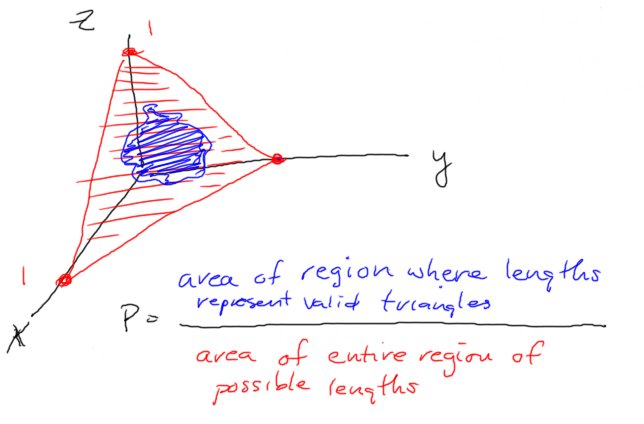 z
1
y
1
x
area of region where lengths
represent valid triangles
P =
area of entire region of
possible lengths